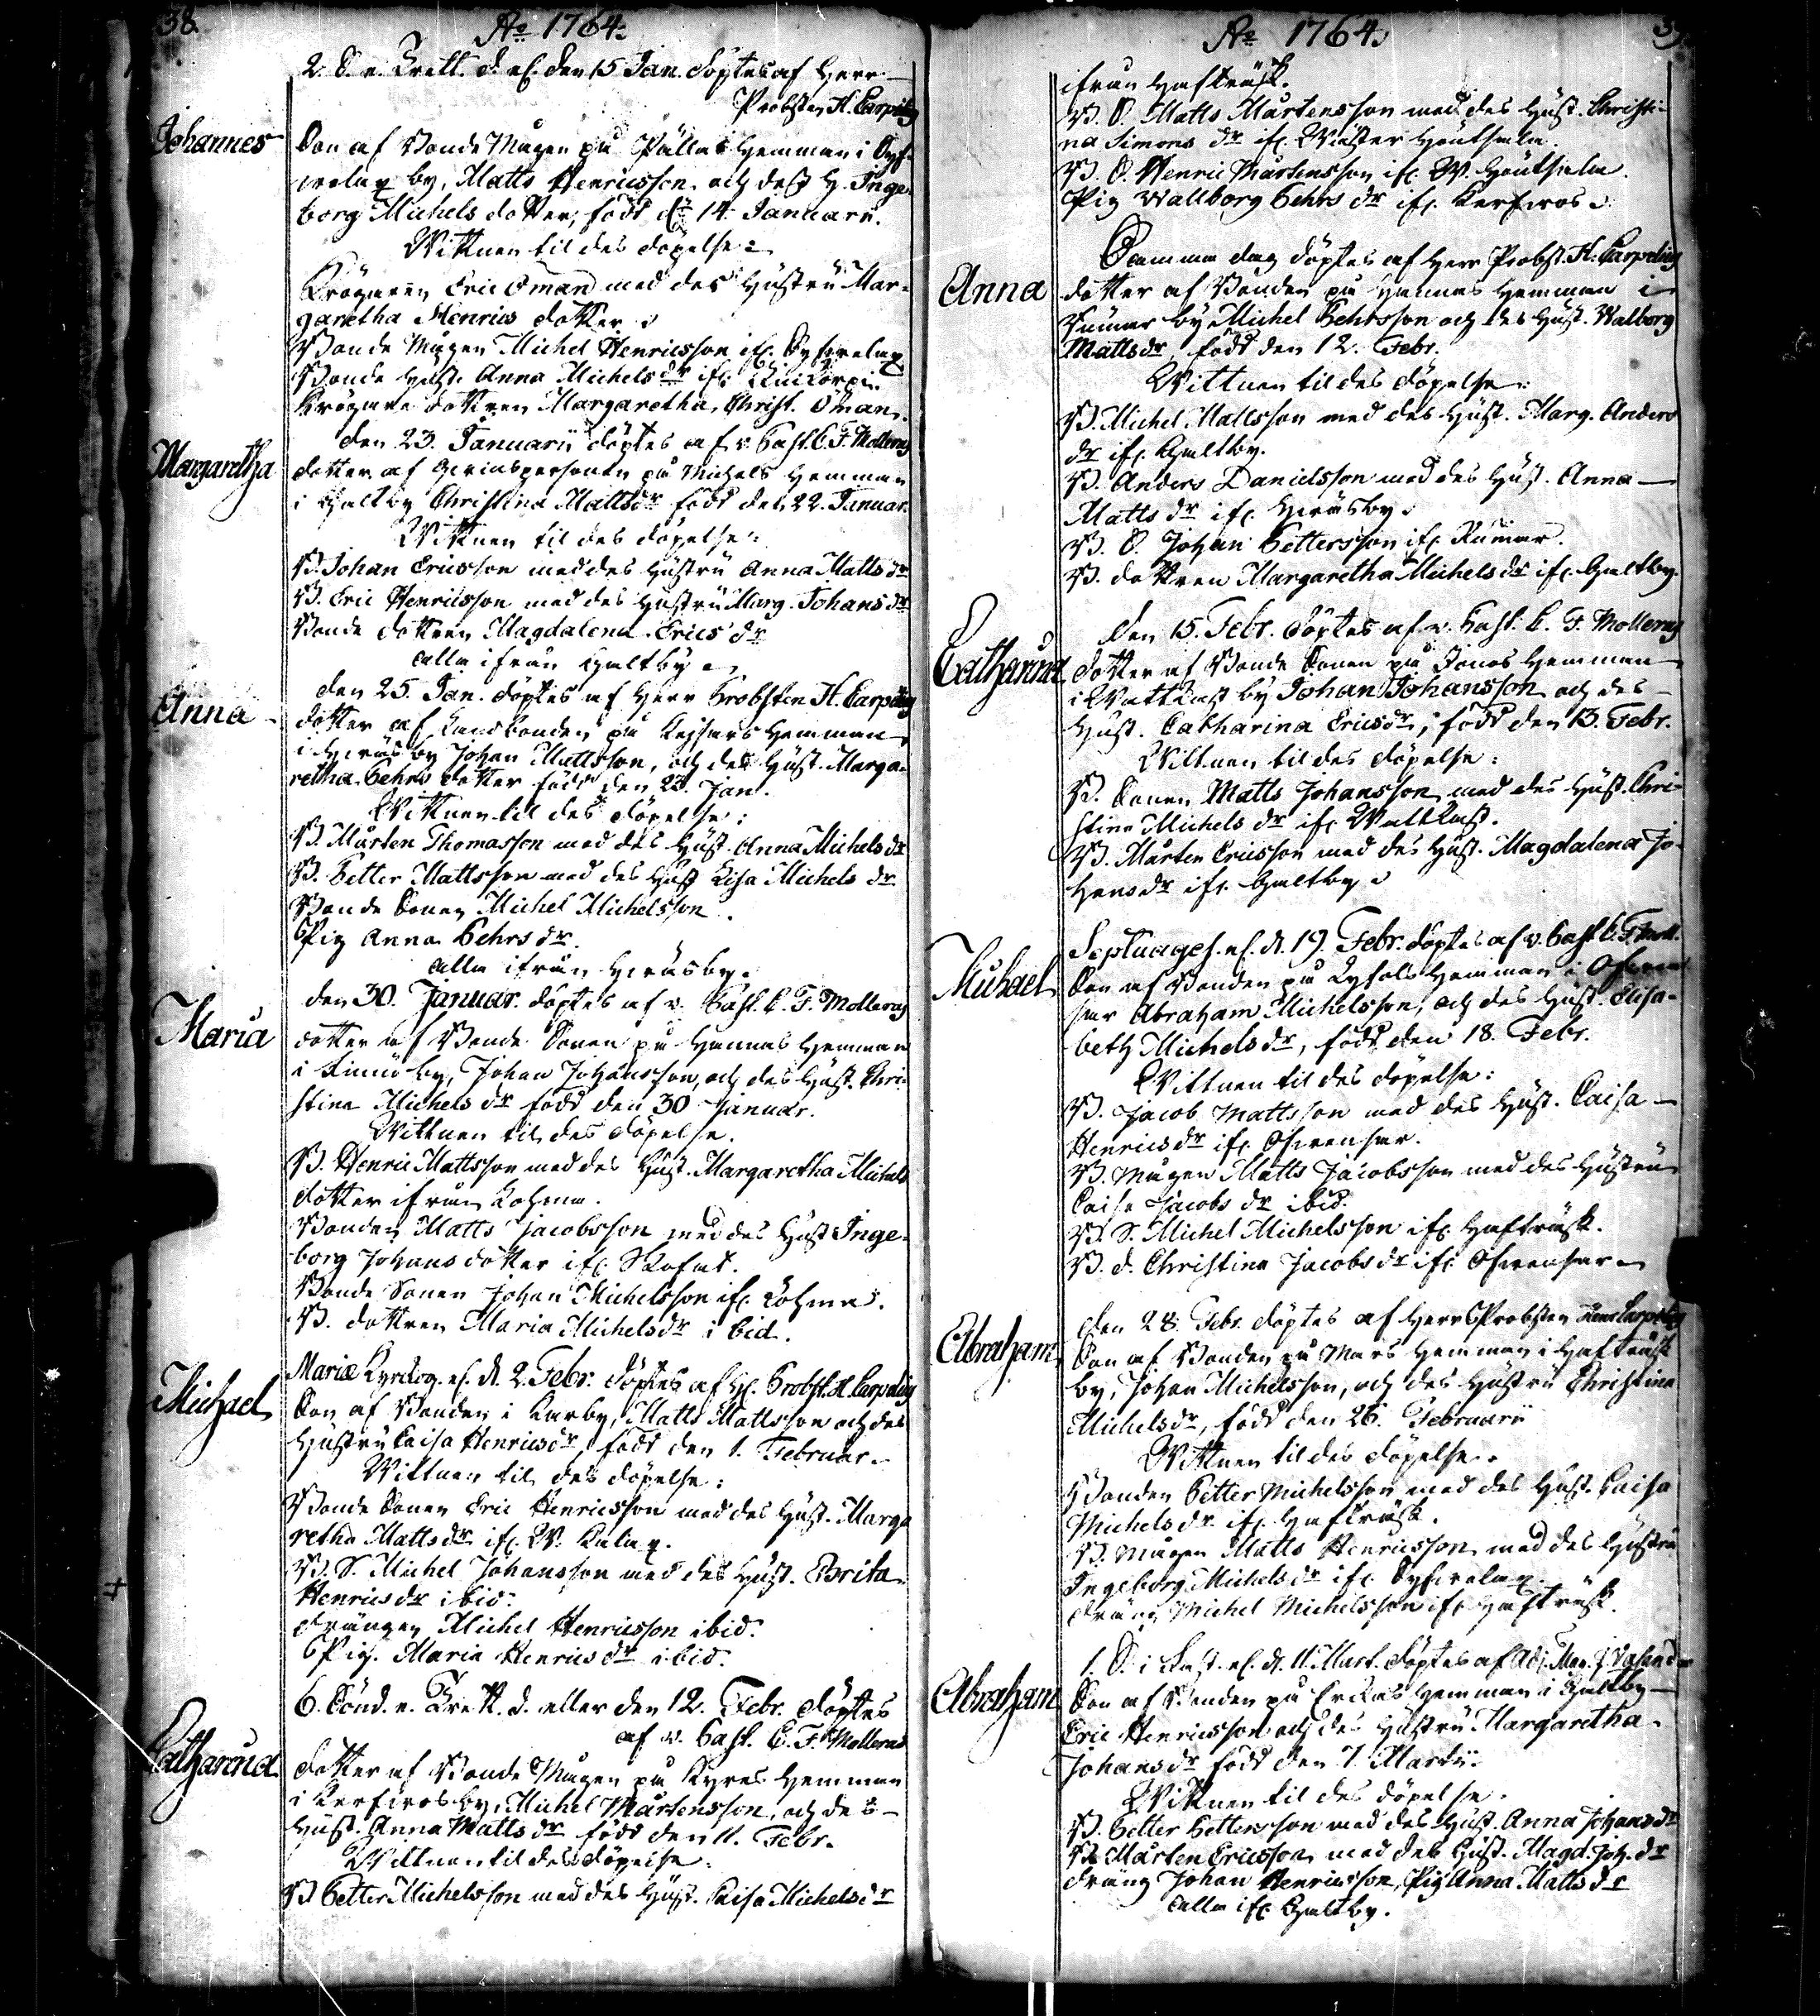 38.
Ao 1764.
2. S. e. Trett. d. el. den 15 Jan. döptes af Herr
Probsten H. Carpelius
Johannes
Son af Bonde Mågen på Pällas Hemman i Syf-
werlax by, Matts Henricsson och dess H. Inge-
borg Michels dotter, född d. 14 Januarii.
Wittnen til des döpelse
Krögaren Eric Öman med des Hustru Mar-
garetha Henrics dotter
Bonde Mågen Michel Henricsson if. Syfwerlax
Bonde Hust. Anna Michels dr if.
Krögare dottren Margaretha Christ. Öman.
Margaretha
den 23. Januarii döptes af v. Past. C. F. Mollerus
dotter af Qwinspersonen på Michels Hemman
i Galtby Christina Mattsdr född den 22. Januar.
Wittnen til des döpelse
B. Johan Ericsson med des Hustru Anna Matts dr
B. Eric Henricsson med des Hustru Marg. Johans dr
Bonde dottren Magdalena Erics dr
alla ifrån Galtby
Anna
den 25. Jan. döptes af Herr Probsten H. Carpelius
dotter af Landbonden på Kejsars Hemman
i Hwäsby Johan Mattsson, och des Hust. Marga-
retha Pehrs dotter född den 23. Jan.
Wittnen til des döpelse:
B. Mårten Thomasson med des Hust. Anna Michels dr
B. Petter Mattsson med des Hust Lisa Michels dr
Bonde Sonen Michel Michelsson.
Pig Anna Pehrs dr.
alla ifrån Hwäsby.
Maria
den 30. Januar. döptes af v. Past. C. F. Mollerus
dotter af Bonde Sonen på Hannas Hemman
i Finnö by, Johan Johansson, och des Hust. Chri-
stina Michels dr född den 30 Januar.
Wittnen til des döpelse.
B. Henric Mattsson med des Hust. Margaretha Michels
dotter ifrån Lohma.
Bonden Matts Jacobsson med des Hust Inge-
borg Johans dotter if. Rofnt.
Bonde Sonen Johan Michelsson if. Lohma.
B. dottren Maria Michelsdr ibid.
Michael
Mariæ Kyrckog. el. d. 2. Febr. döptes af H. Probst. H. Carpelius
Son af Bonden i Karby, Matts Mattsson och des
Hustru Caisa Henricsdr född den 1. Februar.
Wittnen til des döpelse:
Bonde Sonen Eric Henricsson med des Hust. Marga
retha Mattsdr if. W. Kalax.
B. S. Michel Johansson med des Hust. Brita
Henrics dr ibid.
drängen Michel Henricsson ibid.
Pig. Maria Henrics dr ibid.
Catharina
6. Sönd. e. Trett. d. eller den 12. Febr. döptes
af v. Past. C. F. Mollerus
dotter af Bonde Mågen på Kyres Hemman
i Kerfwos by, Michel Mårtensson, och des
Hust. Anna Matts dr född den 11. Febr.
Wittnen til des döpelse.
B. Petter Michelsson med des Hust. Caisa Michels dr
39.
Ao 1764.
ifrån Hafträsk.
B. S. Matts Mårtensson med des Hust. Christi-
na Simons dr if. Wäster Houtskär.
B. S. Henric Mårtensson if. W. Houtskär.
Pig Wallborg Pehrs dr if. Kerfwos
Anna
Samma dag döptes af Herr Probst. H. Carpelius
dotter af Bonden på Hannas Hemman i
Rumar by Michel Pehrsson och des Hust. Walborg
Matts dr född den 12. Febr.
Wittnen til des döpelse:
B. Michel Mattsson med des Hust. Marg. Anders
dr if. Galtby.
B. Anders Danielsson med des Hust. Anna
Matts dr if. Hwäsby.
B. S. Johan Pettersson if. Rumar.
B. dottren Margaretha Michels dr if. Galtby.
Catharina
den 15. Febr. döptes af v. Past. C. F. Mollerus
dotter af Bonde Sonen på Jonas Hemman
i Wattkast by Johan Johansson och des
Hust. Catharina Ericsdr, född den 13. Febr.
Wittnen til des döpelse:
B. Sonen Matts Johansson med des Hust. Chri-
stina Michels dr if. Wattkast.
B. Mårten Ericsson med des Hust. Magdalena Jo-
hans dr if. Galtby
Michael
Septuages. el. d. 19. Febr. döptes af v. Past. C. F. Moll.
Son af Bonden på Hemman i Ofwen
sar Abraham Michelsson, och des Hust. Elisa-
beth Michels dr, född den 18. Febr.
Wittnen til des döpelse:
B. Jacob Mattsson med des Hust. Caisa
Henrics dr if. Ofwensar.
B. Mågen Matts Jacobsson med des Hustru
Caisa Jacobs dr ibid.
B. S. Michel Michelsson if. Hafträsk.
B. d. Christina Jacobs dr if. Ofwensar
Abraham
den 28. Febr. döptes af Herr Probsten Carpelius
Son af Bonden på Mars Hemman i Hafträsk
by, Johan Michelsson, och des Hustru Christina
Michels dr, född den 26. Februarii
Wittnen til des döpelse.
Bonden Petter Michelsson med des Hust. Caisa
Michels dr if. Hafträsk.
B. Mågen Matts Henricsson med des Hustru
Ingeborg Michels dr if. Syfwerlax.
dräng Michel Michelsson if. Hafträsk.
Abraham
1. S. i Fast. el. d. 11. Mart. döptes af Adj.
Son af Bonden på Erikas Hemman i Galtby
Eric Henricsson och des Hustru Margaretha
Johans dr född den 7. Martii.
Wittnen til des döpelse.
B. Petter Pettersson med des Hust. Anna Johans dr
B. Mårten Ericsson med des Hust. Magd. Joh. dr
dräng Johan Henricsson, Pig Anna Matts dr
alla if. Galtby.